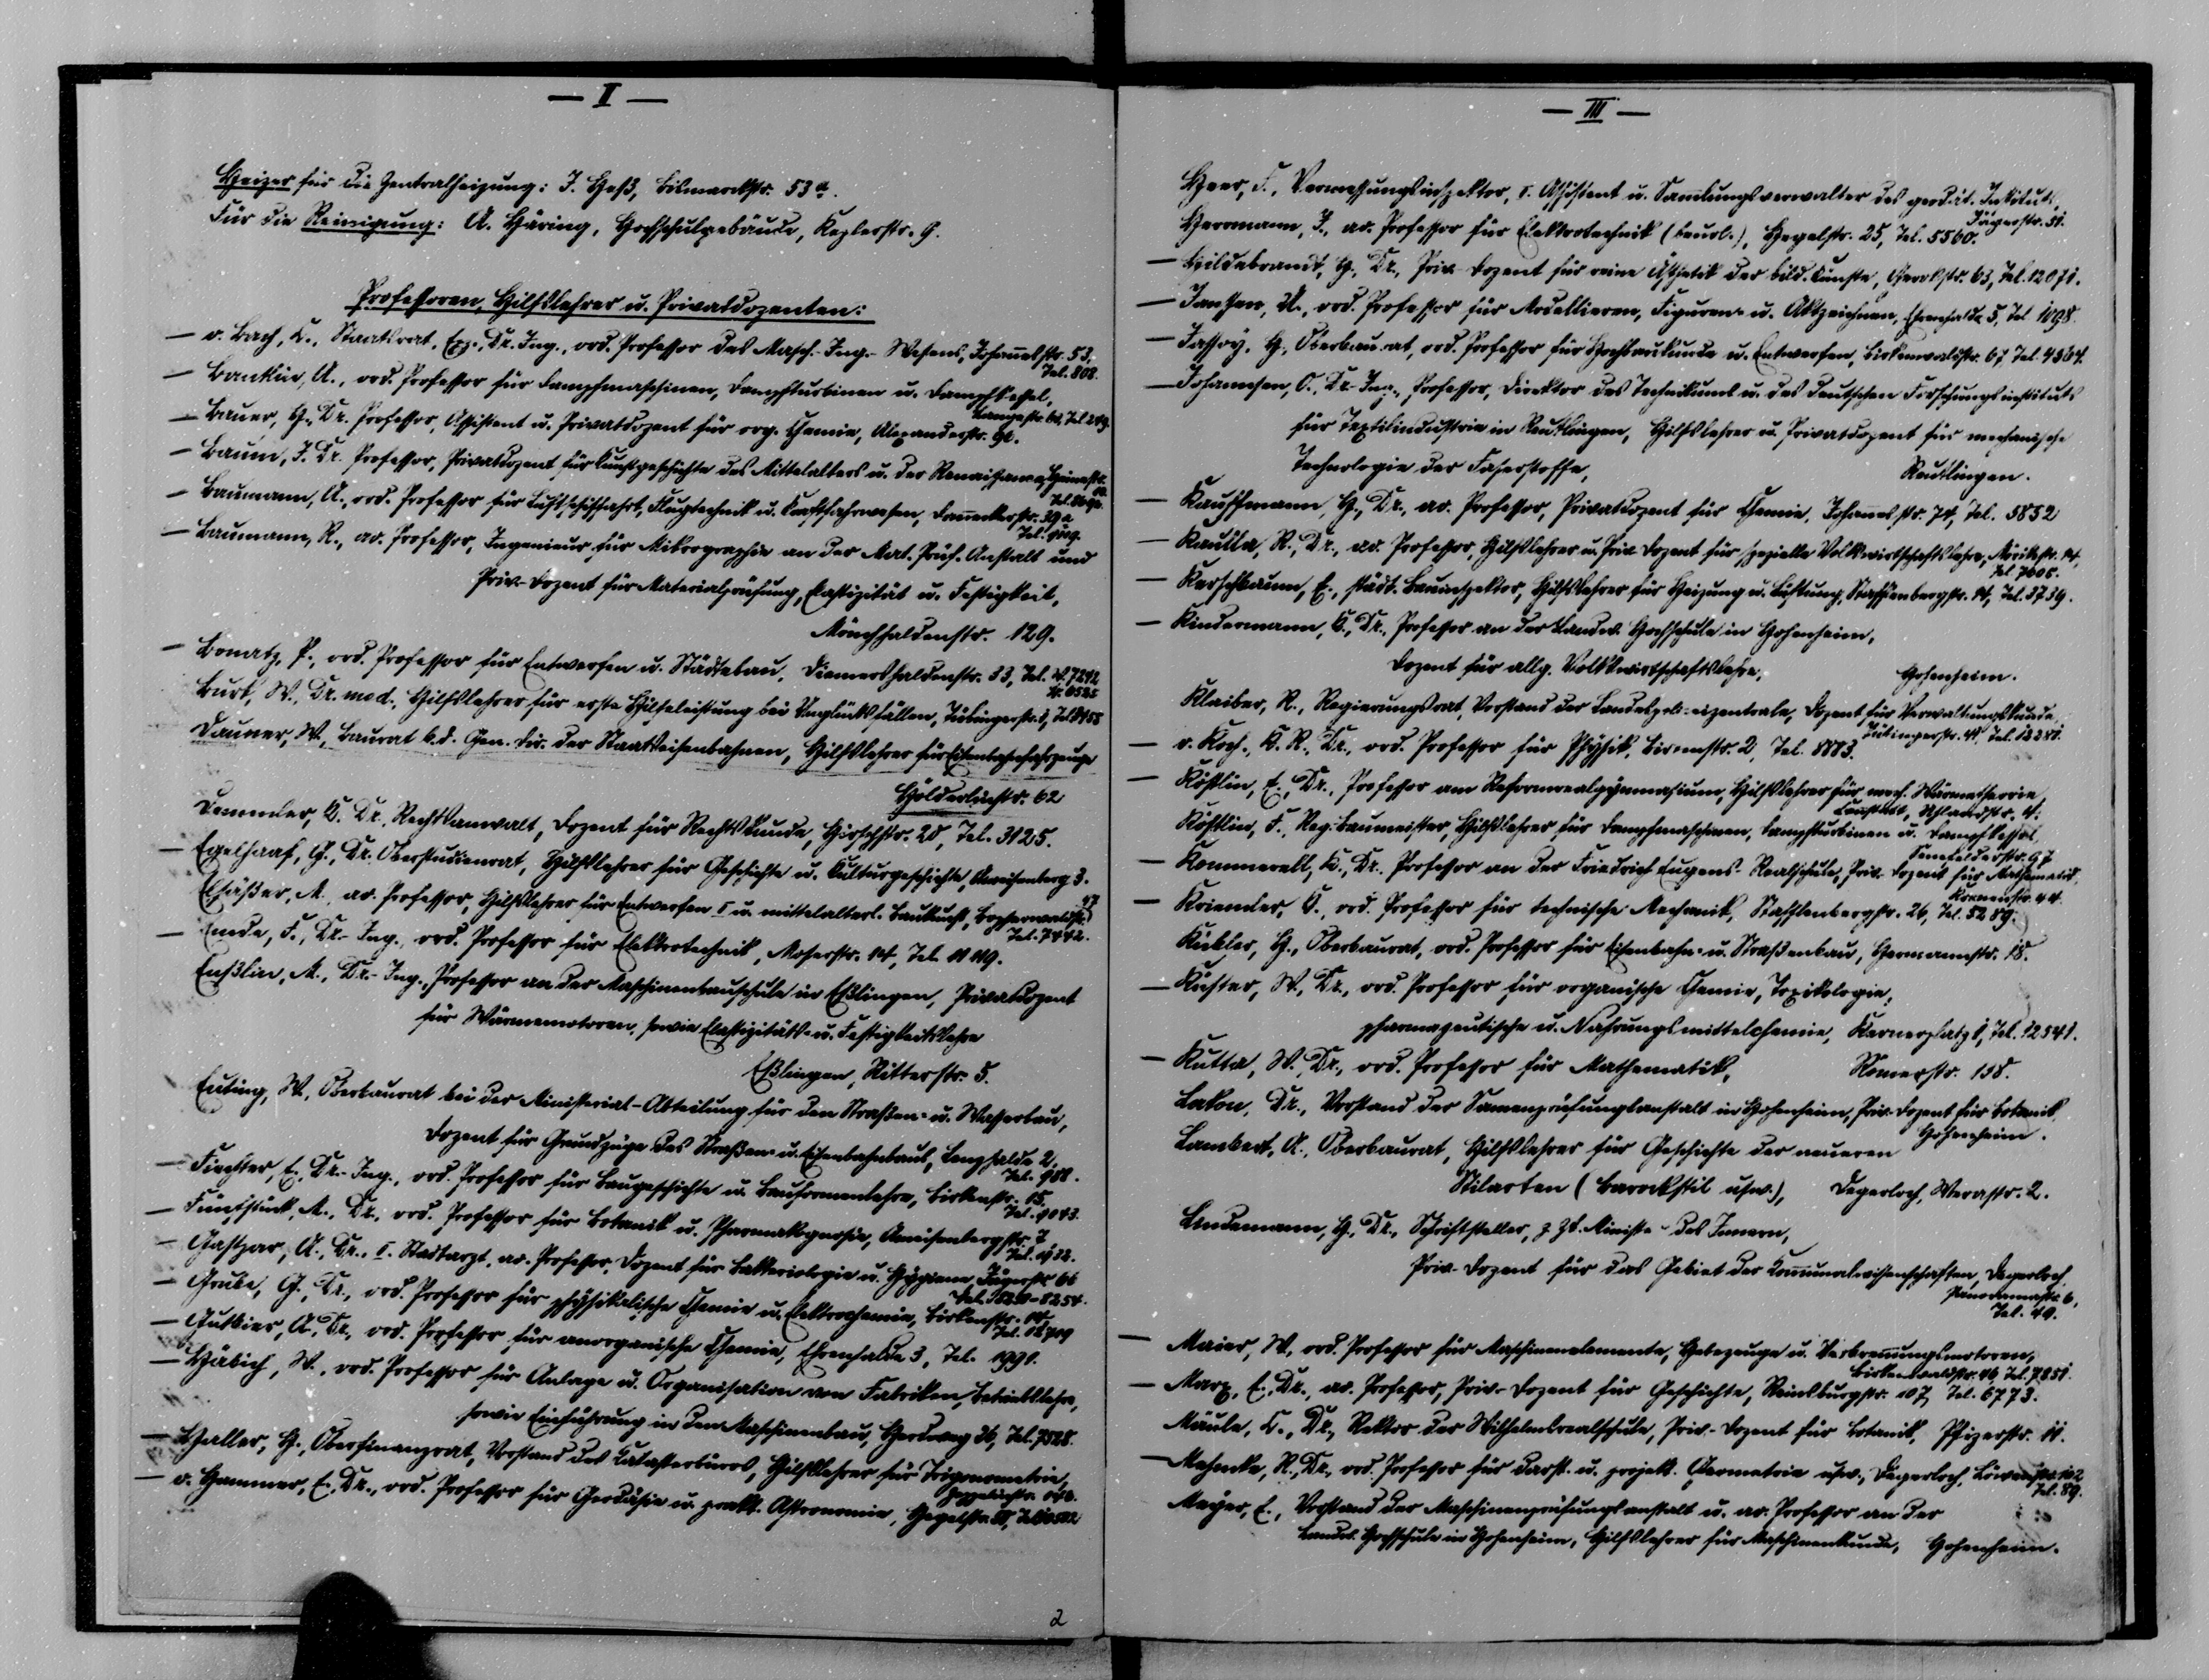 — II —
Heizer für die Zentralheizung: J. Heß, Bismarckstr. 53a.
Für die Reinigung: A. Häring, Hochschulgebäude, Keplerstr. 9.
Professoren, Hilfslehrer u. Privatdozenten:
— v. Bach, C., Staatsrat, Exz., Dr. Ing., ord. Professor des Masch.-Ing.-Wesens, Johannesstr. 53,
Tel. 808.
— Bantlin, A., ord. Professor für Dampfmaschinen, Dampfturbinen u. Dampfkessel,
Tel. 249.
— Bauer, H., Dr. Professor, Assistent u. Privatdozent für org. Chemie, Alexanderstr. 91.
— Baum, J. Dr. Professor, Privatdozent für Kunstgeschichte des Mittelalters u. der Renaissance, Heinestr.
— Baumann, A., ord. Professor für Luftschiffahrt, Flugtechnik u. Kraftfahrwesen, Danneckerstr. 39a
— Baumann, R., ao. Professor, Ingenieur für Mikrographie an der Mat. Prüf. Anstalt und
Priv-Dozent für Materialprüfung, Elastizität u. Festigkeit,
Mönchhaldenstr. 129.
— Bonatz, P., ord. Professor für Entwerfen u. Städtebau, Diemershaldenstr. 33, Tel. 7242
Burk, W., Dr. med., Hilfslehrer für erste Hilfeleistung bei Unglücksfällen, Tübingerstr. 1,
Dauner, W., Baurat b. d. Gen. Dir. der Staatseisenbahnen, Hilfslehrer für Eisenbahnfahrzeuge
Hölderlinstr. 62
Demmler, K. Dr., Rechtsanwalt, Dozent für Rechtskunde, Hirschstr. 20, Tel. 3125.
— Egelhaaf, G., Dr. Oberstudienrat, Hilfslehrer für Geschichte u. Kulturgeschichte, Ameisenberg 3.
Elsäßer, M., ao. Professor, Hilfslehrer für Entwerfen I u. mittelalterl. Baukunst, Bopserwaldstr. 47
Tel. 7442.
— Emde, F., Dr.-Ing., ord. Professor für Elektrotechnik, Moserstr. 14,
Enßlin, M., Dr.-Ing., Professor an der Maschinenbauschule in Eßlingen, Privatdozent
für Wärmemotoren, sowie Elastizitäts- u. Festigkeitslehre
Eßlingen, Ritterstr. 5.
Euting, W., Oberbaurat bei der Ministerial-Abteilung für den Straßen- u. Wasserbau,
Dozent für Grundzüge des Straßen- u. Eisenbahnbaus, Lenzhalde 2,
Tel. 988.
— Fiechter, E., Dr.-Ing., ord. Professor für Baugeschichte u. Bauformenlehre, Birkenstr. 15,
Tel. 9043.
— Fünfstück, M., Dr., ord. Professor für Botanik u. Pharmakognosie, Ameisenbergstr. 7
— Gastpar, A., Dr., I. Stadtarzt, ao. Professor, Dozent für Bakteriologie u. Hygiene, Jägerstr. 66
Tel. 8250–8254.
— Grube, G., Dr., ord. Professor für physikalische Chemie u. Elektrochemie, Birkenstr.
— Gutbier, A., Dr., ord. Professor für anorganische Chemie, Ehrenhalde 3, Tel. 1991.
— Häbich, W., ord. Professor für Anlage u. Organisation von Fabriken, Betriebslehre,
sowie Einführung in den Maschinenbau, Herdweg 36, Tel. 7528.
— Haller, H., Oberfinanzrat, Vorstand des Katasterbüros, Hilfslehrer für Trigonometrie,
— v. Hammer, E., Dr., ord. Professor für Geodäsie u. prakt. Astronomie, Hegelstr.
2
— III —
Heer, F., Vermessungsinspektor, I. Assistent u. Sammlungsverwalter des geodät. Instituts,
Jägerstr. 51.
Herrmann, J., ao. Professor für Elektrotechnik (beurl.), Hegelstr. 25, Tel. 5560.
— Hildebrandt, H., Dr., Priv-Dozent für reine Ästhetik der bild. Künste, Gerokstr. 63, Tel. 12071.
— Janssen, U., ord. Professor für Modellieren, Figuren- u. Aktzeichnen, Ehrenhalde 5, Tel 1098.
— Jassoy, H., Oberbaurat, ord. Professor für Hochbaukunde u. Entwerfen, Birkenwaldstr. 67, Tel. 4564.
— Johannsen, O., Dr-Ing., Professor, Direktor des Technikums u. des Deutschen Forschungsinstituts
für Textilindustrie in Reutlingen, Hilfslehrer u. Privatdozent für mechanische
Technologie der Faserstoffe, Reutlingen.
— Kauffmann, H., Dr., ao. Professor, Privatdozent für Chemie, Johannesstr. 74, Tel. 5852
— Kaulla, R., Dr., ao. Professor, Hilfslehrer u. Priv. Dozent für spezielle Volkswirtschaftslehre, Mörikestr. 14,
Tel. 7605.
— Kerschbaum, E., städt. Bauinspektor, Hilfslehrer für Heizung u. Lüftung, Stafflenbergstr. 14, Tel. 3739.
— Kindermann, C., Dr., Professor an der Landw. Hochschule in Hohenheim,
Dozent für allg. Volkswirtschaftslehre, Hohenheim.
Klaiber, R., Regierungsrat, Vorstand der Landespreiszentrale, Dozent für Verwaltungskunde,
Tübingerstr. 41, Tel. 12281.
— v. Koch, K. R., Dr., ord. Professor für Physik, Birkenstr. 2, Tel. 8883.
— Köstlin, E., Dr., Professor am Reformrealgymnasium, Hilfslehrer für mech. Wärmetheorie,
Cannstatt, Uhlandstr. 4.
Köstlin, F., Reg. Baumeister, Hilfslehrer für Dampfmaschinen, Dampfturbinen u. Dampfkessel,
Senefelderstr. 97
— Kommerell, K., Dr., Professor an der Friedrich Eugens-Realschule, Priv-Dozent für Mathematik,
— Kriemler, C., ord. Professor für technische Mechanik, Stafflenbergstr. 26, Tel. 5289.
Kübler, H., Oberbaurat, ord. Professor für Eisenbahn- u. Straßenbau, Hermannstr. 18.
— Küster, W., Dr., ord. Professor für organische Chemie, Toxikologie,
pharmazeutische u. Nahrungsmittelchemie, Kernerplatz 1, Tel. 12541.
— Kutta, W., Dr., ord. Professor für Mathematik, Römerstr. 138.
Lakon, Dr., Vorstand der Samenprüfungsanstalt in Hohenheim, Priv-Dozent für Botanik
Hohenheim.
Lambert, A., Oberbaurat, Hilfslehrer für Geschichte der neueren
Stilarten (Barockstil usw.), Degerloch, Werastr. 2.
Lindemann, H., Dr., Schriftsteller, z. Zt. Minister des Innern,
Priv-Dozent für das Gebiet der Kommunalwissenschaften, Degerloch,
Panoramastr. 6,
Tel. 40.
— Maier, W., ord. Professor für Maschinenelemente, Hebezeuge u. Verbrennungsmotoren,
Birkenwaldstr. 46, Tel. 7851.
— Marx, E., Dr., ao. Professor, Priv-Dozent für Geschichte, Reinsburgstr. 107, Tel. 6773.
Mäule, C., Dr., Rektor der Wilhelmsrealschule, Priv-Dozent für Botanik, Pfizerstr. 11.
— Mehmke, R., Dr., ord. Professor für darst. u. projekt. Geometrie usw., Degerloch, Löwenstr. 102
Tel. 89.
Meyer, E., Vorstand der Maschinenprüfungsanstalt u. ao. Professor an der
Landw. Hochschule in Hohenheim, Hilfslehrer für Maschinenkunde, Hohenheim.